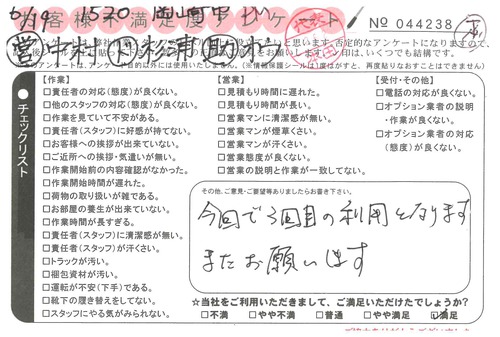 6/19 1530 岡山町中
お客様不満足度アンケート
No 044238
営 中村 杉浦 助
・アンケート目的以外には使用いたしません。(※情報保護シールは1度はがすと、再度貼りなおすことはできません)
チェックリスト
【作業】
□責任者の対応(態度)が良くない。
□他のスタッフの対応(態度)が良くない。
□作業を見ていて不安がある。
□責任者(スタッフ)に好感が持てない。
□お客様への挨拶が出来ていない。
□ご近所への挨拶・気遣いが無い。
□作業開始前の内容確認がなかった。
□作業開始時間が遅れた。
□荷物の取り扱いが雑である。
□お部屋の養生が出来ていない。
□作業時間が長すぎる。
□責任者(スタッフ)に清潔感が無い。
□責任者(スタッフ)が汗くさい。
□トラックが汚い。
□梱包資材が汚い。
□運転が不安(下手)である。
□靴下の履き替えをしてない。
□スタッフにやる気がみられない。
【営業】
□見積もり時間に遅れた。
□見積もり時間が長い。
□営業マンに清潔感が無い。
□営業マンが煙草くさい。
□営業マンが汗くさい。
□営業態度が良くない。
□営業の説明と作業が一致してない。
【受付・その他】
□電話の対応が良くない。
□オプション業者の説明
・作業が良くない。
□オプション業者の対応
(態度)が良くない。
その他、ご意見・ご要望等ありましたらお書き下さい。
今回で3回目の利用となります
またお願いします
☆当社をご利用いただきまして、ご満足いただけたでしょうか?
□不満 □やや不満 □普通 □やや満足 ☑満足